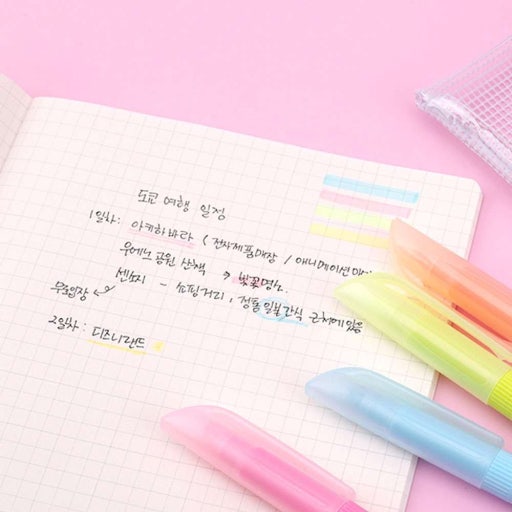 도쿄 여행 일정
1일차: 아키하바라 ( 전자제품매장 / 애니메이션
우에노 공원 산책 → 벚꽃명소
센소지 - 쇼핑거리, 전통 일본간식 근처에 있음
무료입장
2일차: 디즈니랜드